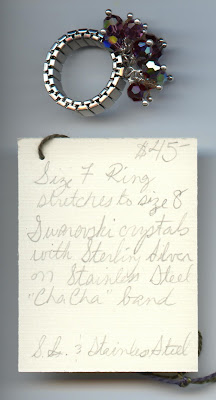 $45-
Size 7 Ring
stretches to size 8
Swarovski crystals
with Sterling Silver
on Stainless Steel
"ChaCha" band
S.S. & Stainless Steel